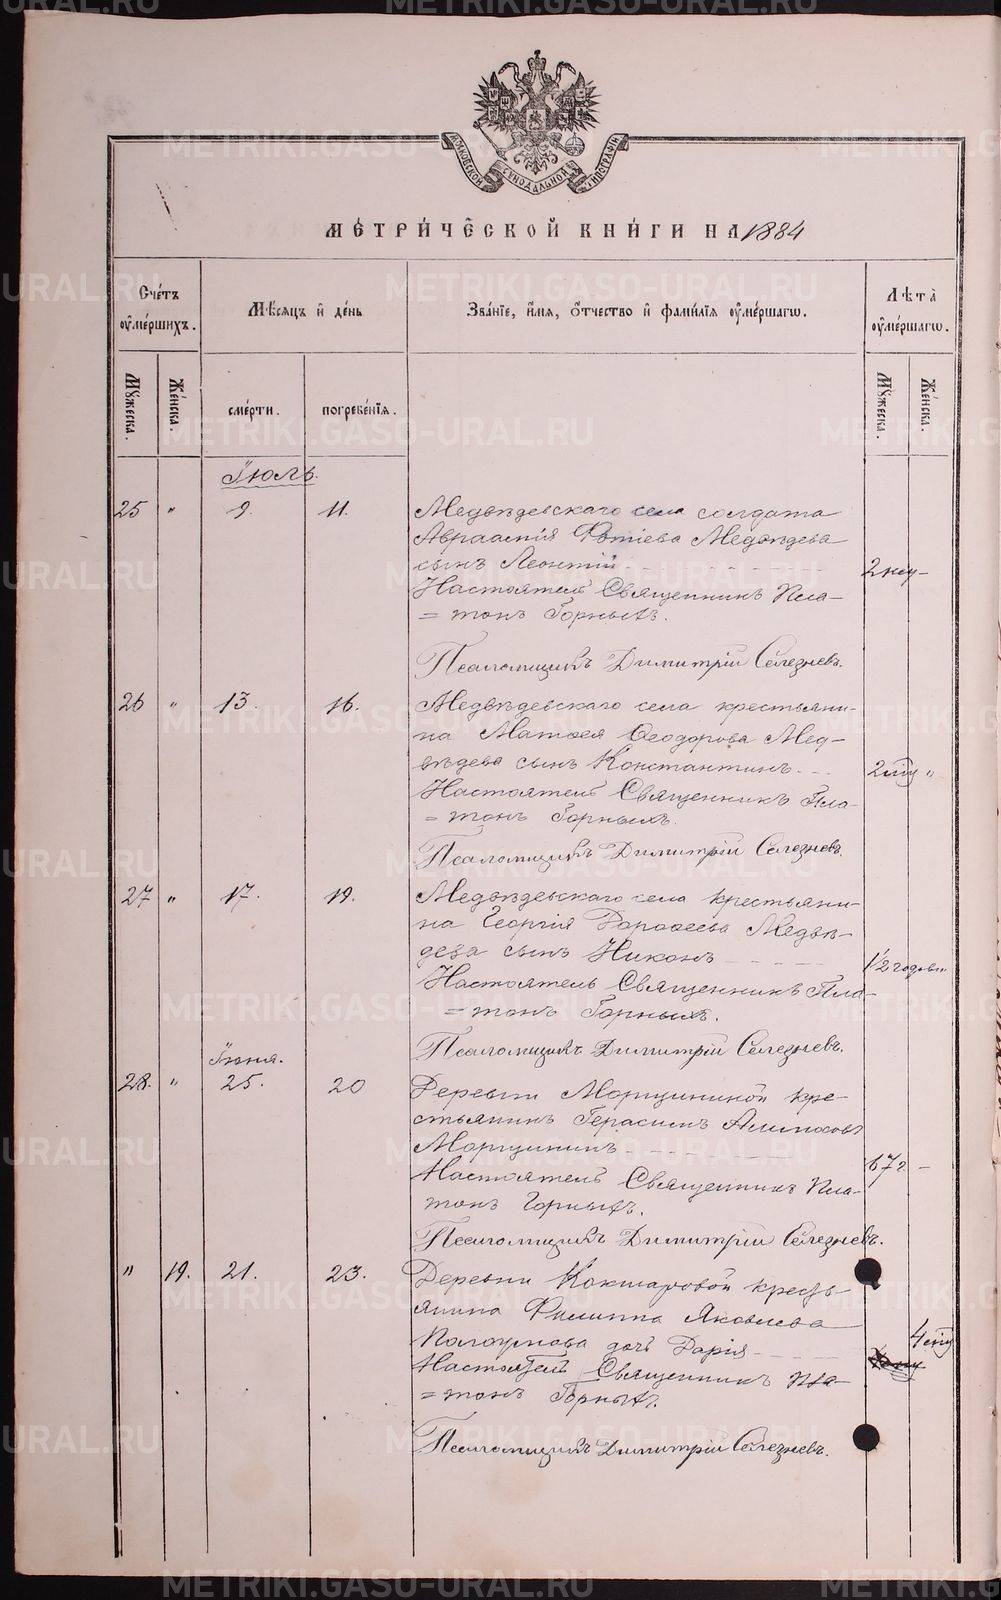 МОСКОВСКОЙ СѴНОДАЛЬНОЙ ТИПОГРАФІИ
МЕТРИ́ЧЕСКОЙ КНИ́ГИ НА 1884
Сче́тъ ᲂу҆ме́ршихъ.
Мѣ́сяцъ и҆ де́нь
Зва́нїе, и҆́мѧ, ѻ҆́тчество и҆ фами́лїѧ ᲂу҆ме́ршагѡ.
Лѣта̀ ᲂу҆ме́ршагѡ.
Мꙋ́жеска.
Же́нска.
сме́рти.
погребе́нїѧ.
Мꙋ́жеска.
Же́нска.
Іюль.
25 " 9. 11. Медвѣдевскаго села солдата
Авраамія Фотіева Медвѣдева
сынъ Леонтій
2
Настоятель Священникъ Пла-
=тонъ Горныхъ.
Псаломщикъ Димитрій Селезневъ.
26 " 13. 16. Медвѣдевскаго села крестьяни-
на Матѳея Ѳеодорова Мед-
вѣдева сынъ Константинъ
2 "
Настоятель Священникъ Пла-
=тонъ Горныхъ.
Псаломщикъ Димитрій Селезневъ.
27 " 17. 19. Медвѣдевскаго села крестьяни-
на Георгія Дороѳеева Медвѣ-
дева сынъ Никонъ
1/2 годов.
Настоятель Священникъ Пла-
=тонъ Горныхъ.
Псаломщикъ Димитрій Селезневъ.
Іюня.
28. " 25. 20 Деревни Морщининой кре-
стьянинъ Герасимъ
Морщининъ
67 г. -
Настоятель Священникъ Пла-
тонъ Горныхъ.
Псаломщикъ Димитрій Селезневъ.
" 19. 21. 23. Деревни Кокшаровой крестья-
янина Филиппа Яковлева
Полоумова дочь Дарія
4
Настоятель Священникъ Пла-
=тонъ Горныхъ.
Псаломщикъ Димитрій Селезневъ.
METRIKI.GASO-URAL.RU